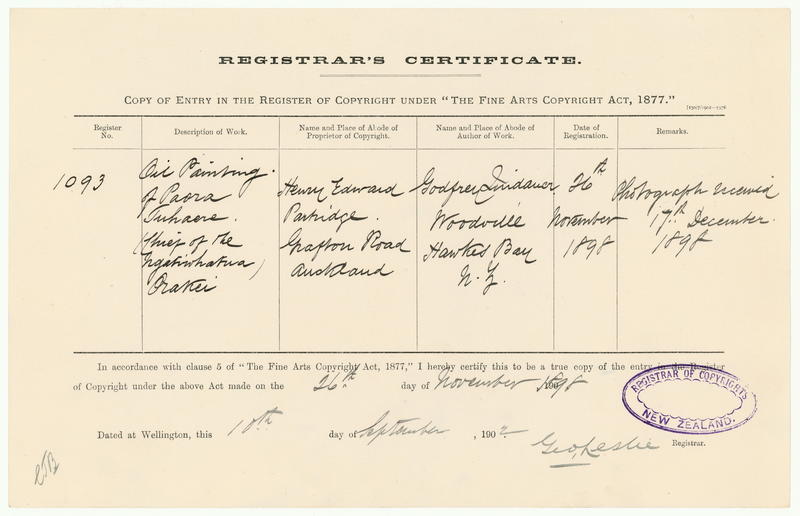 REGISTRAR'S CERTIFICATE.
COPY OF ENTRY IN THE REGISTER OF COPYRIGHT UNDER "THE FINE ARTS COPYRIGHT ACT, 1877."
Register No.
Description of Work.
Name and Place of Abode of Proprietor of Copyright.
Name and Place of Abode of Author of Work.
Date of Registration.
Remarks.
1093
Oil Painting.
of Paora
Tuhaere.
(Chief of the
Ngatiwhatua)
Orakei
Henry Edward
Partridge.
Grafton Road
Auckland
Godfrey Lindauer
Woodville
Hawkes Bay
N.Z.
26th
November
1898
Photograph received
17th December.
1898
In accordance with clause 5 of "The Fine Arts Copyright Act, 1877," I hereby certify this to be a true copy of the entry in the Register
of Copyright under the above Act made on the 26th day of November 1898
Dated at Wellington, this 10th day of September, 1902
Geo, Leslie Registrar.
REGISTRAR OF COPYRIGHTS
NEW ZEALAND.